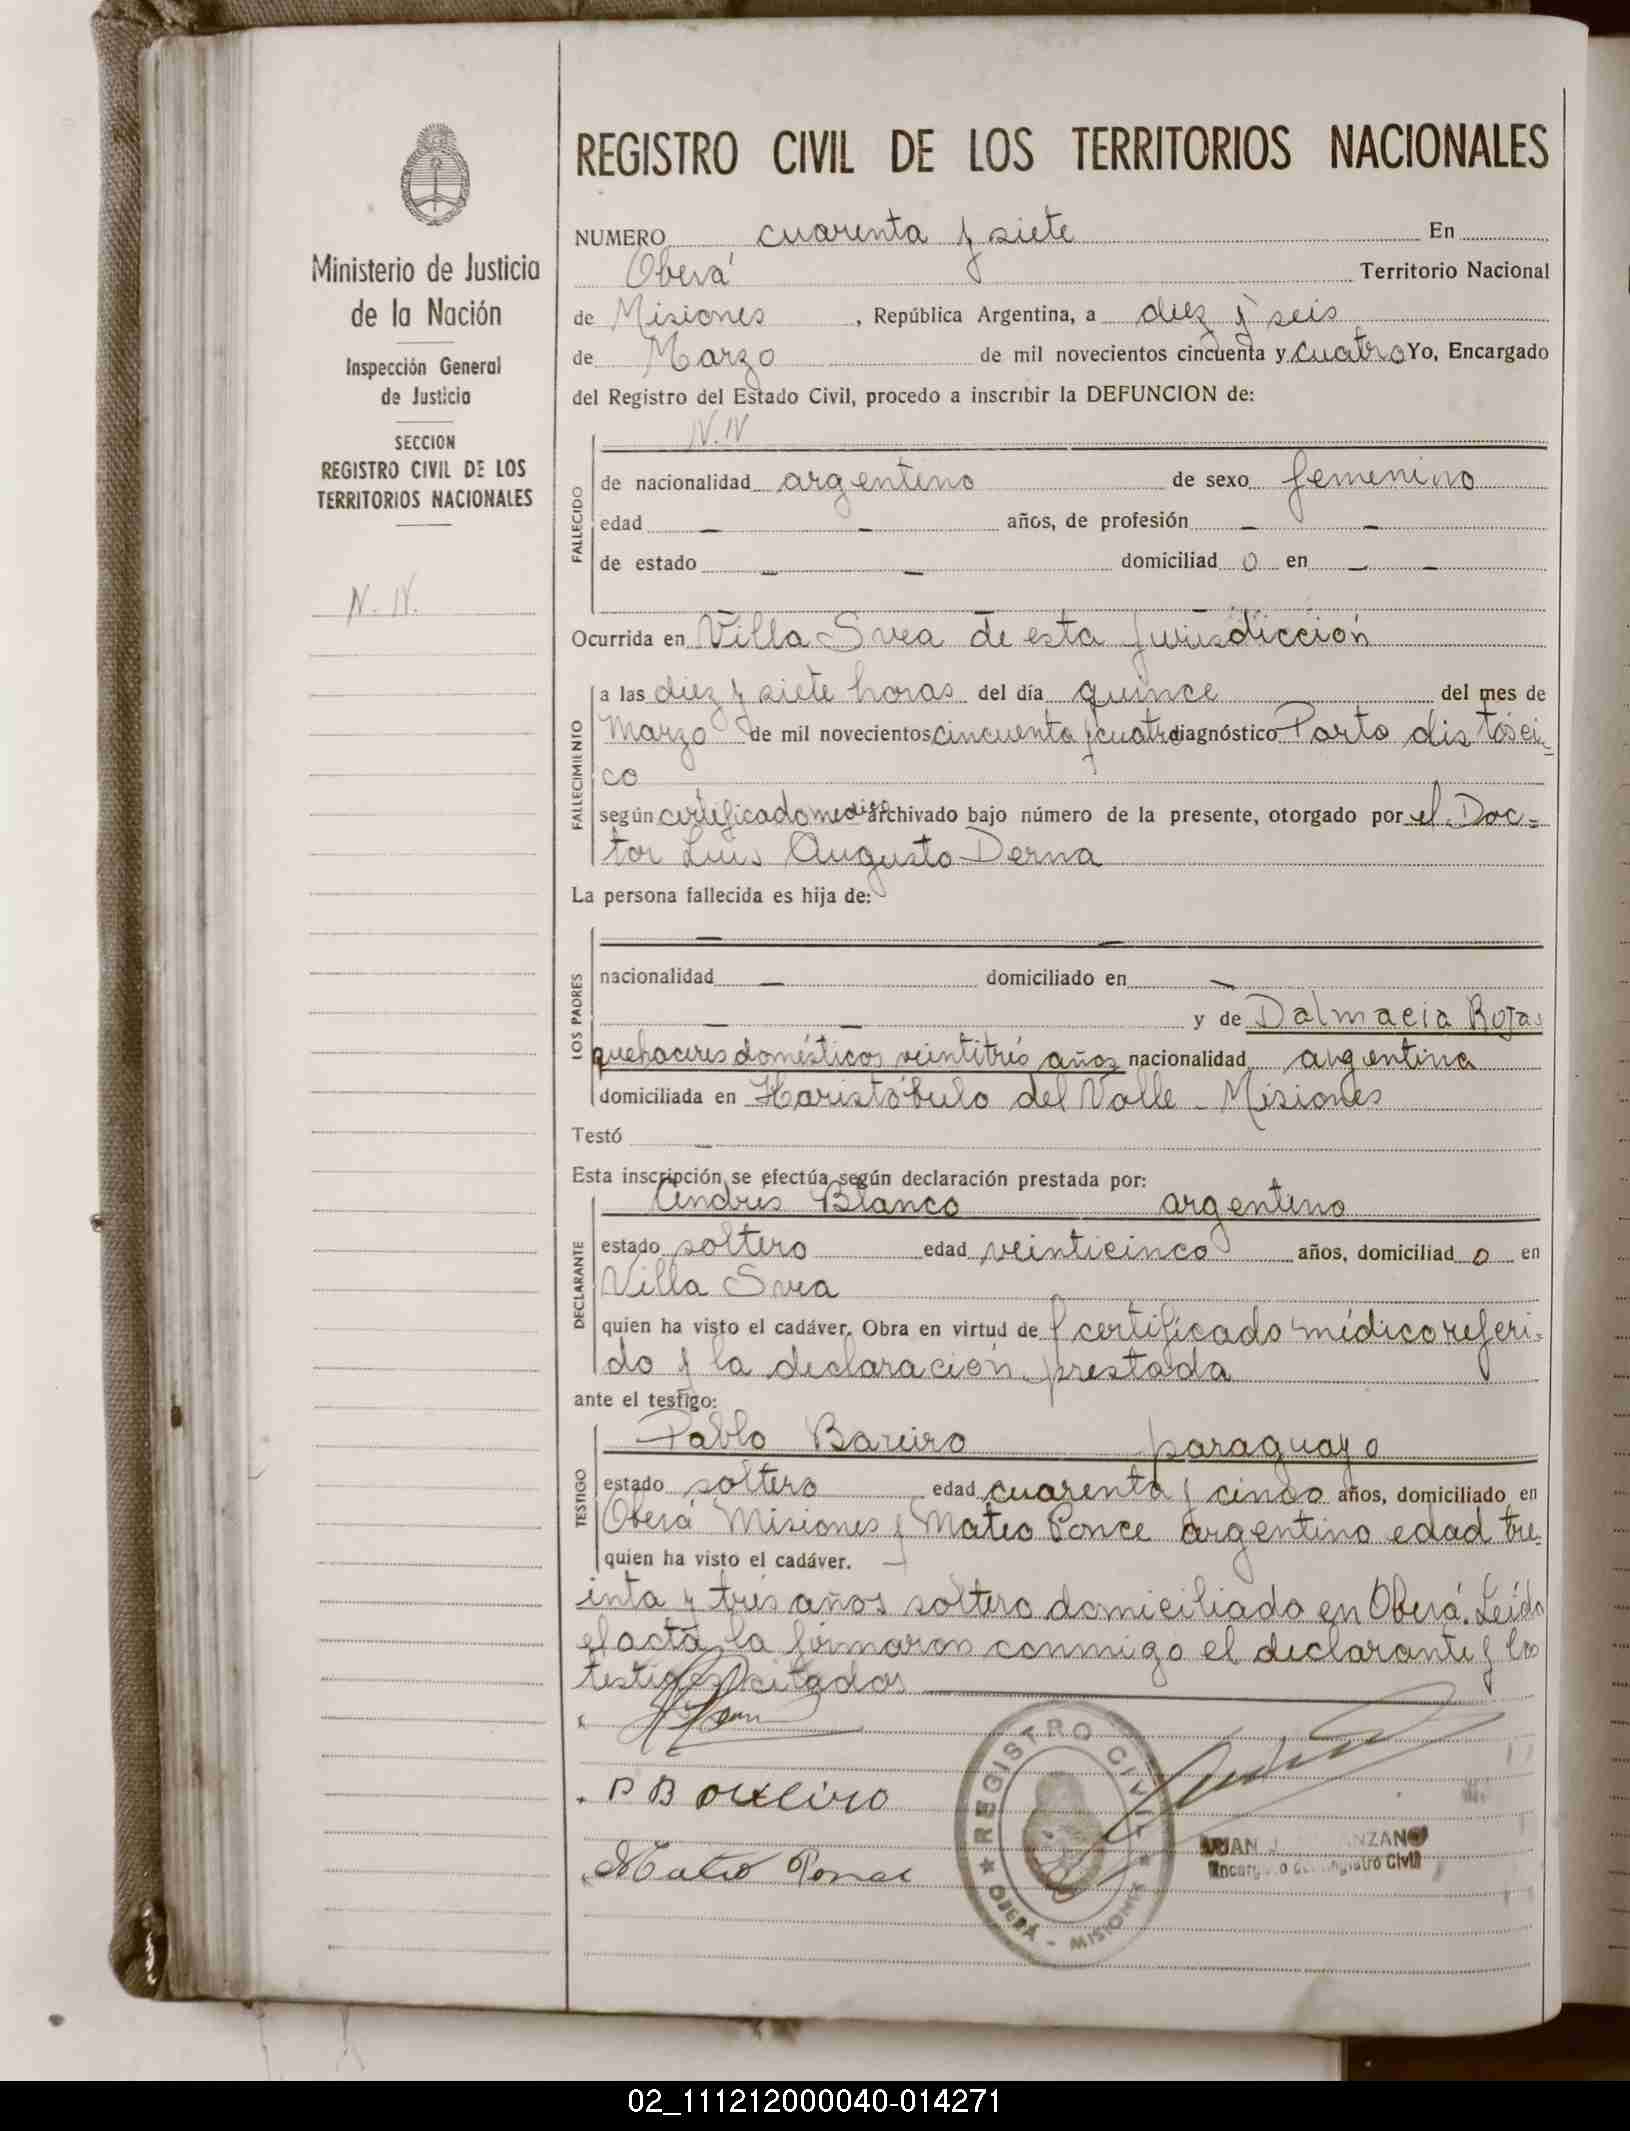 Ministerio de Justicia
de la Nación
Inspección General
de Justicia
SECCION
REGISTRO CIVIL DE LOS
TERRITORIOS NACIONALES
N. N.
REGISTRO CIVIL DE LOS TERRITORIOS NACIONALES
NUMERO cuarenta y siete En
Oberá Territorio Nacional
de Misiones , República Argentina, a diez y seis
de Marzo de mil novecientos cincuenta y cuatro Yo, Encargado
del Registro del Estado Civil, procedo a inscribir la DEFUNCION de:
N. N
FALLECIDO
de nacionalidad argentino de sexo femenino
edad — — años, de profesión — —
de estado — — domiciliad o en — —
Ocurrida en Villa Svea de esta jurisdicción
FALLECIMIENTO
a las diez y siete horas del día quince del mes de
Marzo de mil novecientos cincuenta y cuatro diagnóstico Parto distósci-
co
según certificado medico archivado bajo número de la presente, otorgado por el Doc-
tor Luis Augusto Derna
La persona fallecida es hija de:
LOS PADRES
— —
nacionalidad — domiciliado en —
— — y de Dalmacia Rojas
quehaceres domésticos veintitrés años nacionalidad argentina
domiciliada en Haristóbulo del Valle - Misiones
Testó —
Esta inscripción se efectúa según declaración prestada por:
DECLARANTE
Andrés Blanco argentino
estado soltero edad veinticinco años, domiciliad o en
Villa Svea
quien ha visto el cadáver. Obra en virtud de certificado médico referi-
do y la declaración prestada
ante el testigo:
TESTIGO
Pablo Bareiro paraguayo
estado soltero edad cuarenta y cinco años, domiciliado en
Oberá Misiones y Mateo Ponce argentino edad tre-
quien ha visto el cadáver.
inta y tres años soltero domiciliado en Oberá. Leída
el acta, la firmaron conmigo el declarante y los
testigos citados
P Bareiro
Mateo Ponce
REGISTRO CIVIL
OBERÁ - MISIONES
JUAN J. MANZANO
Encargado del Registro Civil
02_111212000040-014271